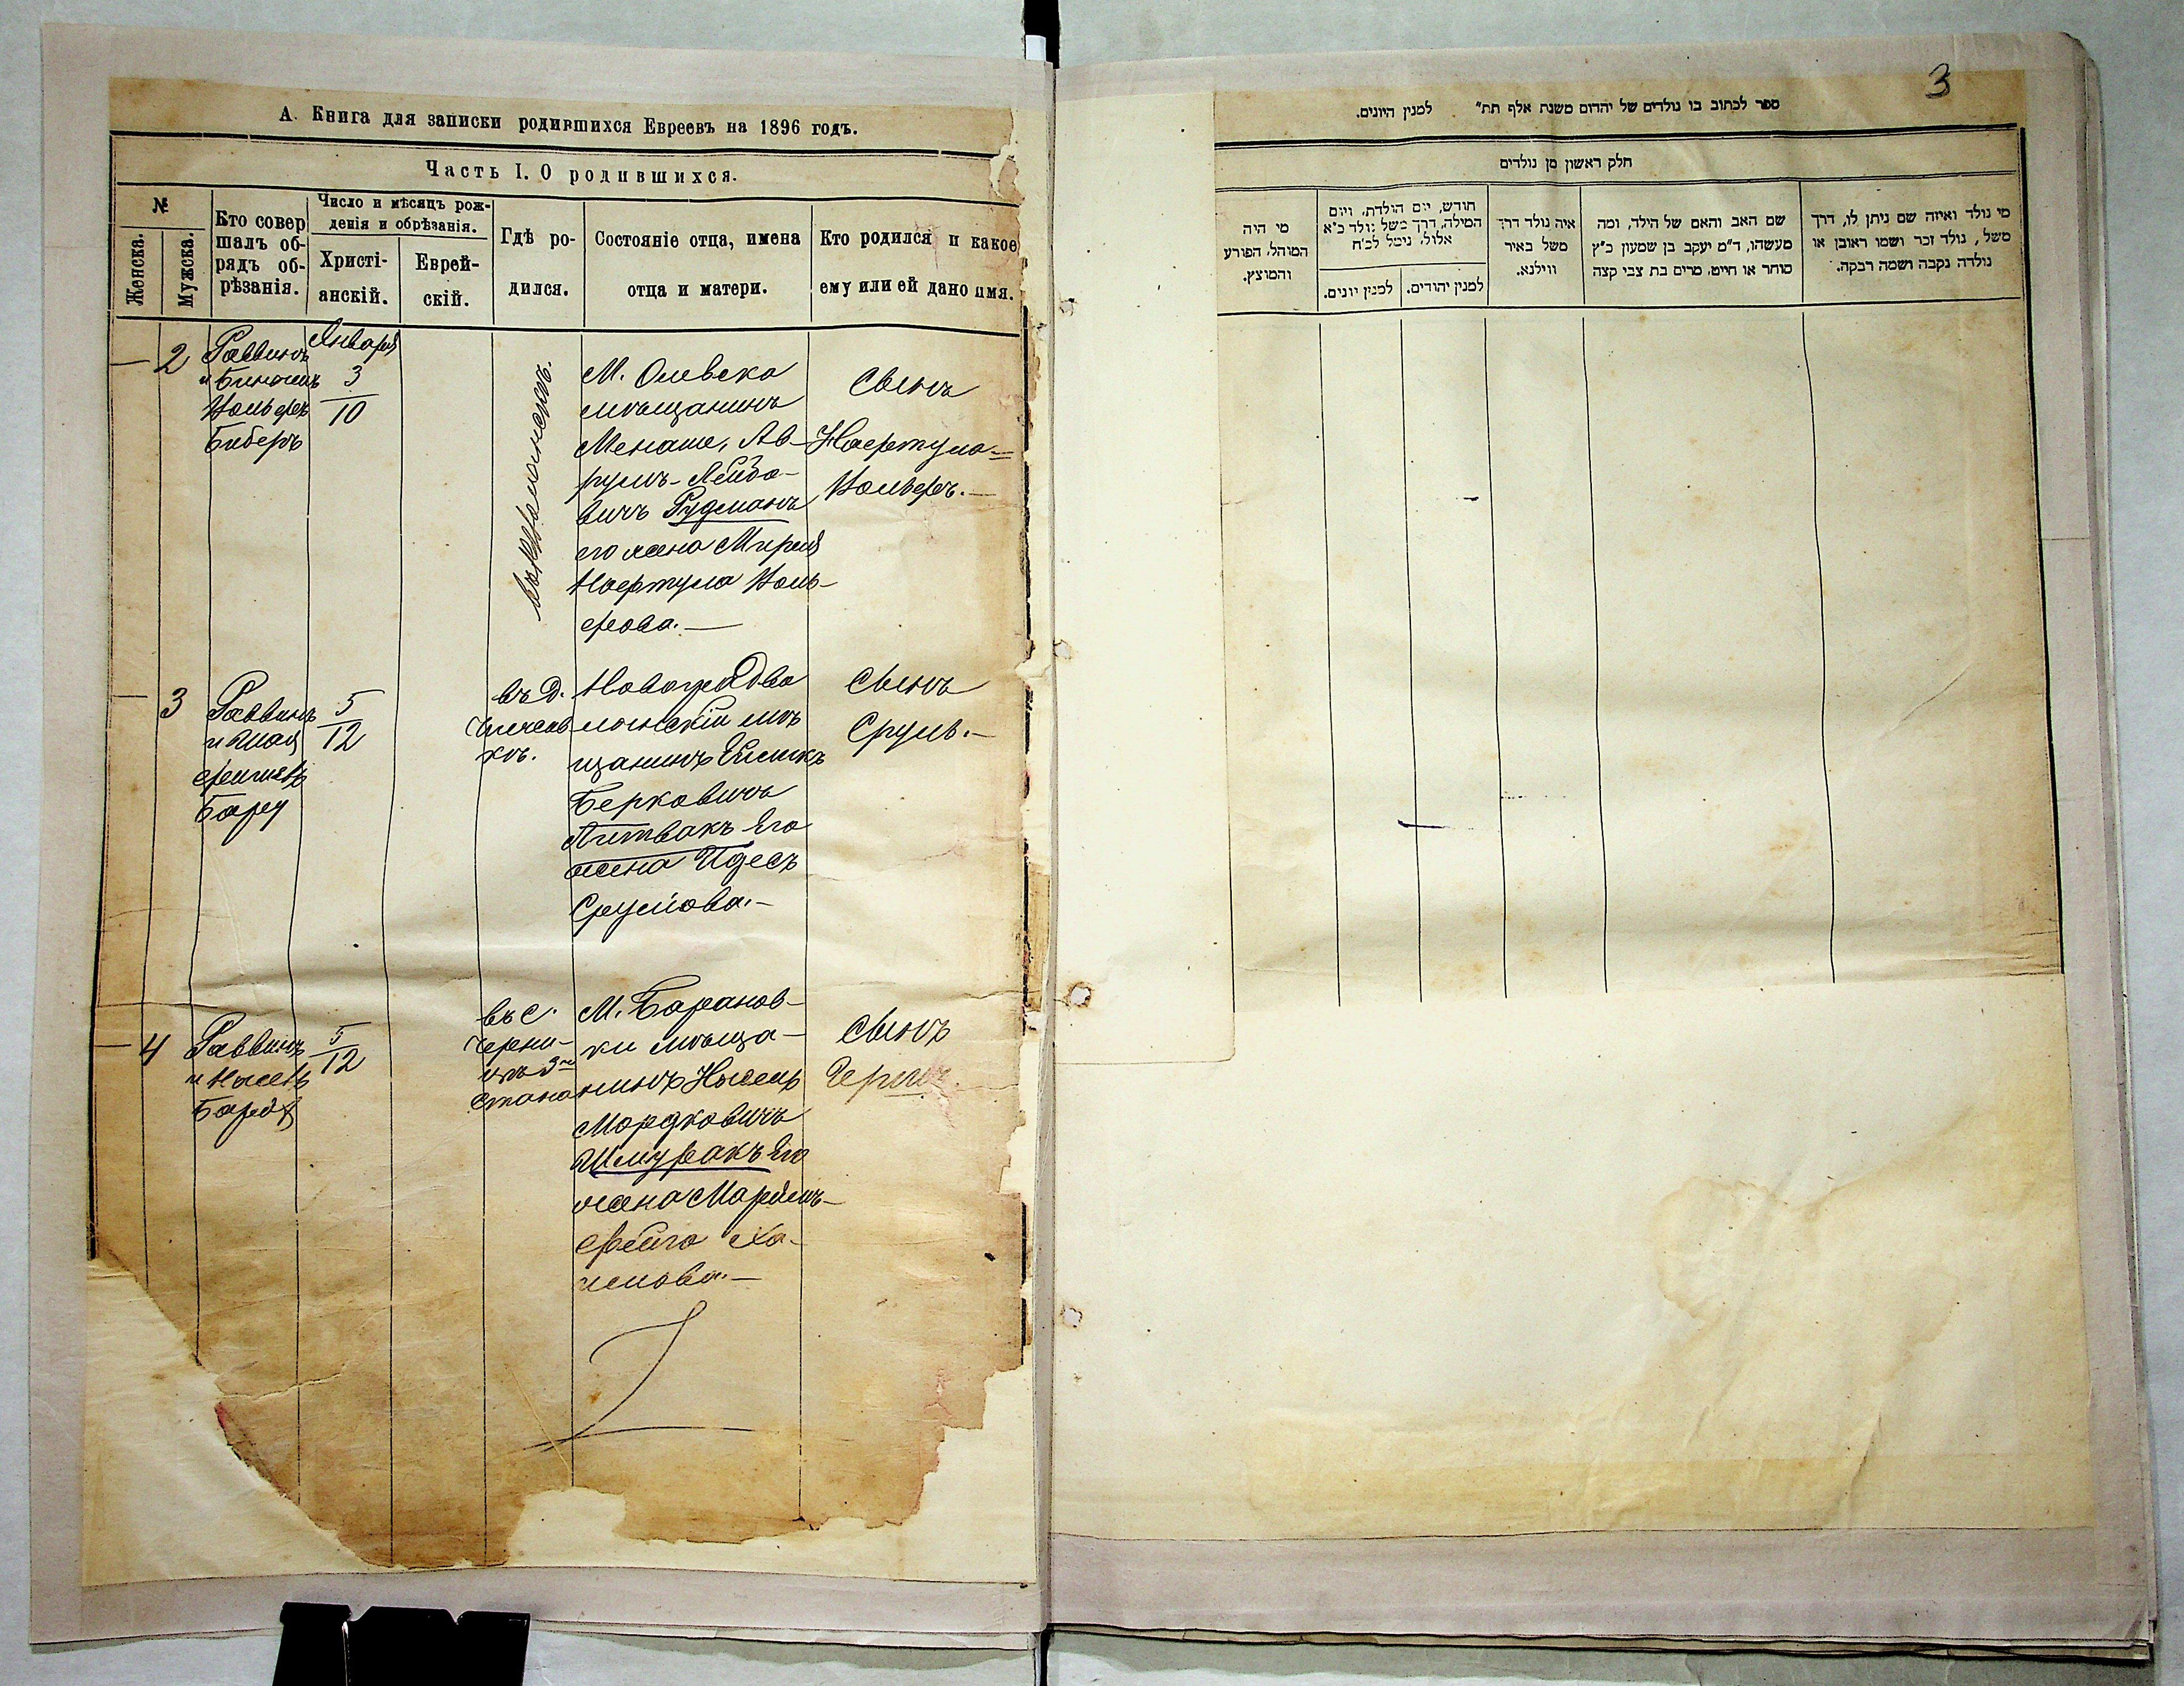 А. Книга для записки родившихся Евреевъ на 1896 годъ.
Часть I. О родившихся.
№
Женска.
Мужска.
Кто совер
шалъ об-
рядъ об-
рѣзанія.
Число и мѣсяцъ рож-
денія и обрѣзанія.
Христі-
анскій.
Еврей-
скій.
Гдѣ ро-
дился.
Состояніе отца, имена
отца и матери.
Кто родился и какое
ему или ей дано имя.
— 2
Раввинъ
Вольфъ
Биберъ
Января
3
10
М. Олевска
мѣщанинъ
Менаше, Ав-
румъ-Лейбо-
вичъ Рудманъ
его жена
Воль-
фова.—
Сынъ
Вольфъ.—
— 3
Раввинъ
и Шая
5
12
въ д.
Новоградво
лынскій мѣ
щанинъ
Берковичъ
Литвакъ его
жена Идесъ
Срулова.—
Сынъ
Сруль.—
— 4
Раввинъ
5
12
въ с.
стана
М. Баранов-
ки мѣща-
нинъ
Мордковичъ
его
жена
Фейга Ха-
имова.—
Сынъ
3
ספר לכתוב בו נולדים של יהדום משנת אלף תת״ למנין היונים.
חלק ראשון מן נולדים
מי נולד ואיזה שם ניתן לו, דרך
משל, נולד זכר ושמו ראובן או
נולדה נקבה ושמה רבקה.
שם האב והאם של הילד, ומה
מעשהו, ד״מ יעקב בן שמעון כ״ץ
סוחר או חייט, מרים בת צבי קצה
איה נולד דרך
משל באיר
ווילנא.
חודש, יום הולדת, ויום
המילה, דרך משל נולד כ״א
אלול, נימל לכ״ח
למנין יהודים.
למנין יונים.
מי היה
המוהל, הפורע
והמוצץ.